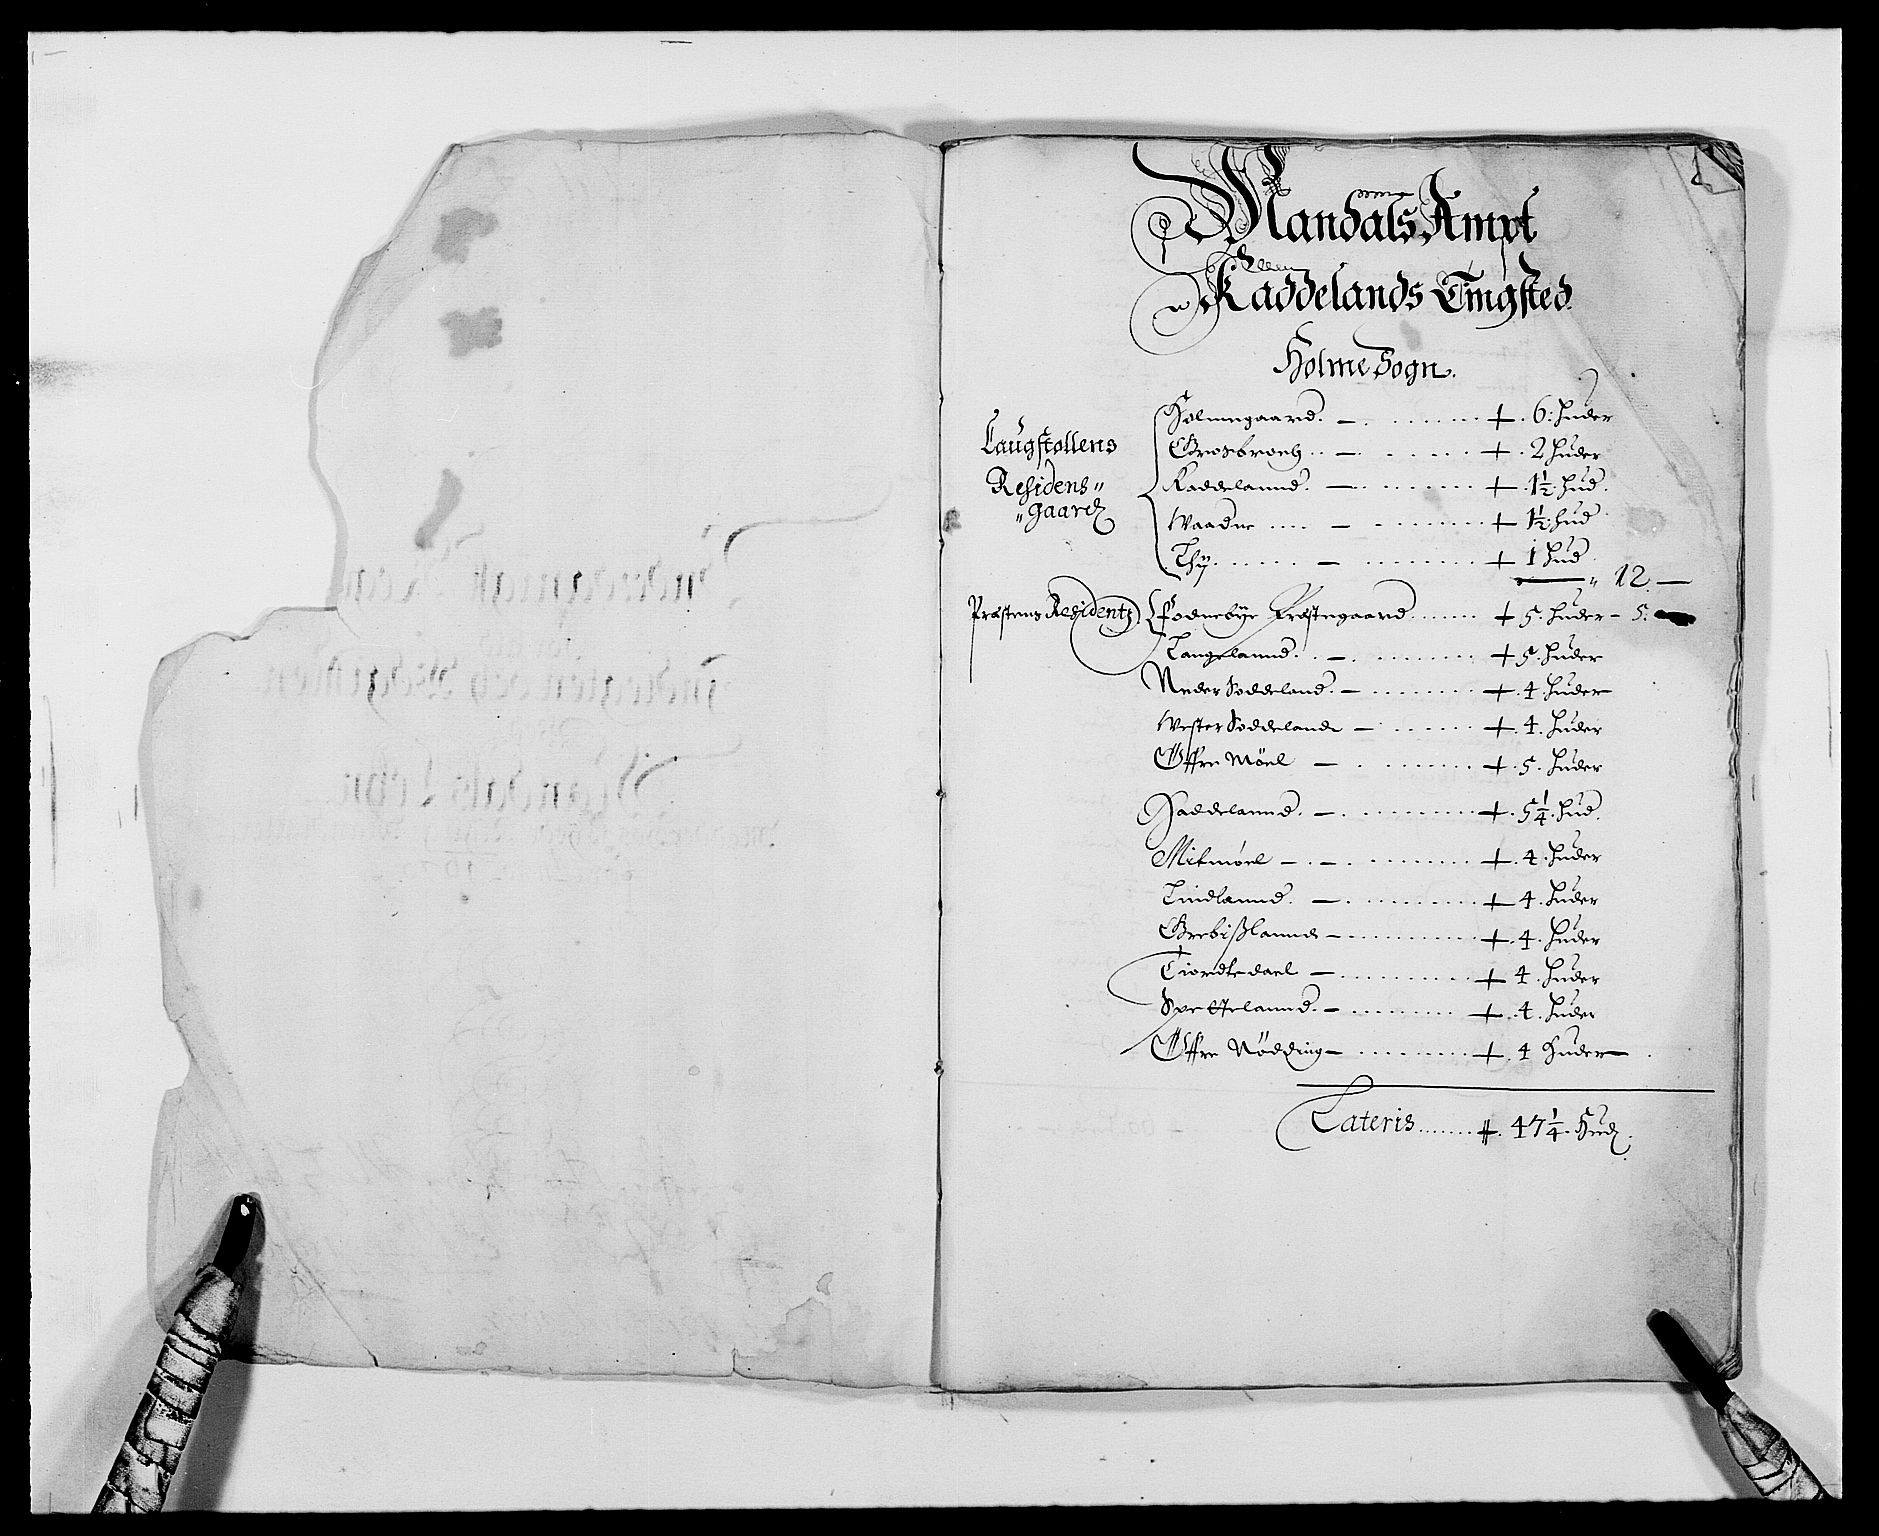 1
Mandals Ampt
Kaddelands Tingsted
Holme Sogn.
Laugstollens
Residens
gaard
Holmegaard. — + 6. huder
Grosbroch — + 2 huder
Kaddelannd. — + 1½ hud
Waadne — + 1½ hud
Thÿ — + 1 hud
12 —
Præstens Residentz Fodnebÿe Præstegaard + 5. huder – 5.
Langelannd. — + 5. huder
Neder Soddeland. — + 4. huder
Wester Soddeland — + 4. huder
Öffre Möel — + 5. huder
Haddelannd. — + 5¼ hud
Mitmöel — + 4. huder
Lindlannd. — + 4. huder
Grebißlannd — + 4. huder
Tiordtedael — + 4. huder
Spettelannd. — + 4. huder
Öffre Nödding — + 4 huder
Lateris 47¼ Hud